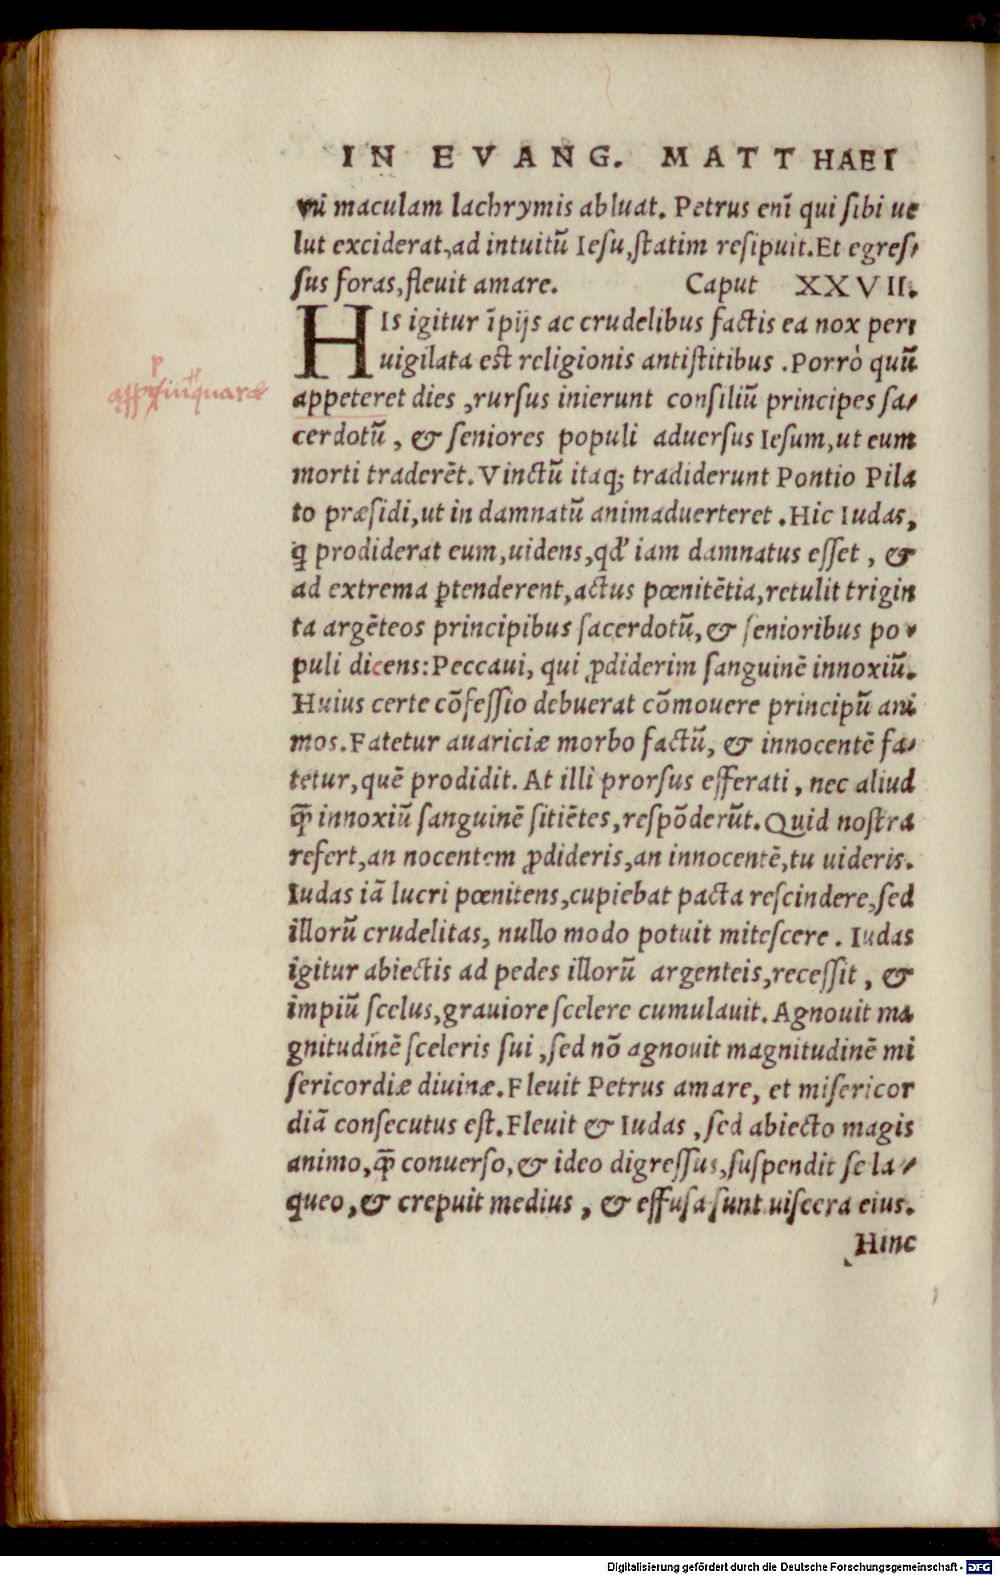 IN EVANG. MATTHAEI
ni maculam lachrymis abluat. Petrus enī qui ſibi ue
lut exciderat, ad intuitū Ieſu, ſtatim reſipuit. Et egreſ-
ſus foras, fleuit amare. Caput XXVII.
HIs igitur īpijs ac crudelibus factis ea nox per-
uigilata eſt religionis antiſtitibus. Porrò quū
appeteret dies, rurſus inierunt conſiliū principes ſa-
cerdotū, & ſeniores populi aduerſus Ieſum, ut eum
morti traderēt. Vinctū itaq; tradiderunt Pontio Pila
to præſidi, ut in damnatū animaduerteret. Hic Iudas,
q̄ prodiderat eum, uidens, qd' iam damnatus eſſet, &
ad extrema ꝑtenderent, actus pœnitētia, retulit trigin
ta argēteos principibus ſacerdotū, & ſenioribus po-
puli dicens: Peccaui, qui ꝓdiderim ſanguinē innoxiū.
Huius certe cōfeſſio debuerat cōmouere principū ani
mos. Fatetur auariciæ morbo factū, & innocentē fa-
tetur, quē prodidit. At illi prorſus efferati, nec aliud
q̄ innoxiū ſanguinē ſitiētes, reſpōderūt. Quid noſtra
refert, an nocentem ꝓdideris, an innocentē, tu uideris.
Iudas iā lucri pœnitens, cupiebat pacta reſcindere, ſed
illorū crudelitas, nullo modo potuit miteſcere. Iudas
igitur abiectis ad pedes illorū argenteis, receſſit, &
impiū ſcelus, grauiore ſcelere cumulauit. Agnouit ma
gnitudinē ſceleris ſui, ſed nō agnouit magnitudinē mi
ſericordiæ diuinæ. Fleuit Petrus amare, et miſericor
diā conſecutus eſt. Fleuit & Iudas, ſed abiecto magis
animo, q̄ conuerſo, & ideo digreſſus, ſuſpendit ſe la-
queo, & crepuit medius, & effuſa ſunt uiſcera eius.
Hinc
Digitalisierung gefördert durch die Deutsche Forschungsgemeinschaft - DFG